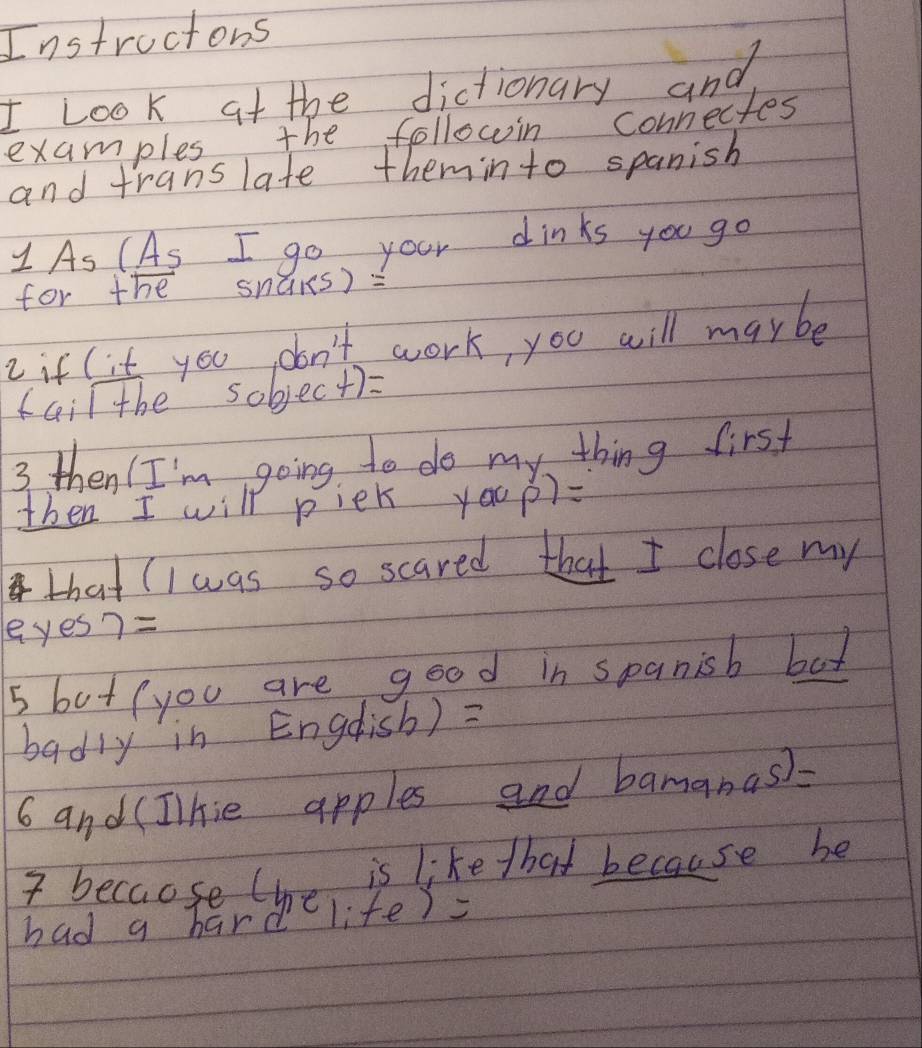 Instructons
I Look at the dictionary and
examples the followin connectes
and translate theminto spanish
1 As (As I go your dinks you go
for the snaks) =
2 if (if you don't work, you will maybe
fail the sobject) =
3 then (I'm going to do my thing first
then I will piek you p) =
4 that (I was so scared that I close my
eyes) =
5 but (you are good in spanish but
badly in Engdish) =
6 and (I lkie apples and bamanas) =
7 becaose (he is like that because he
had a hard life) =